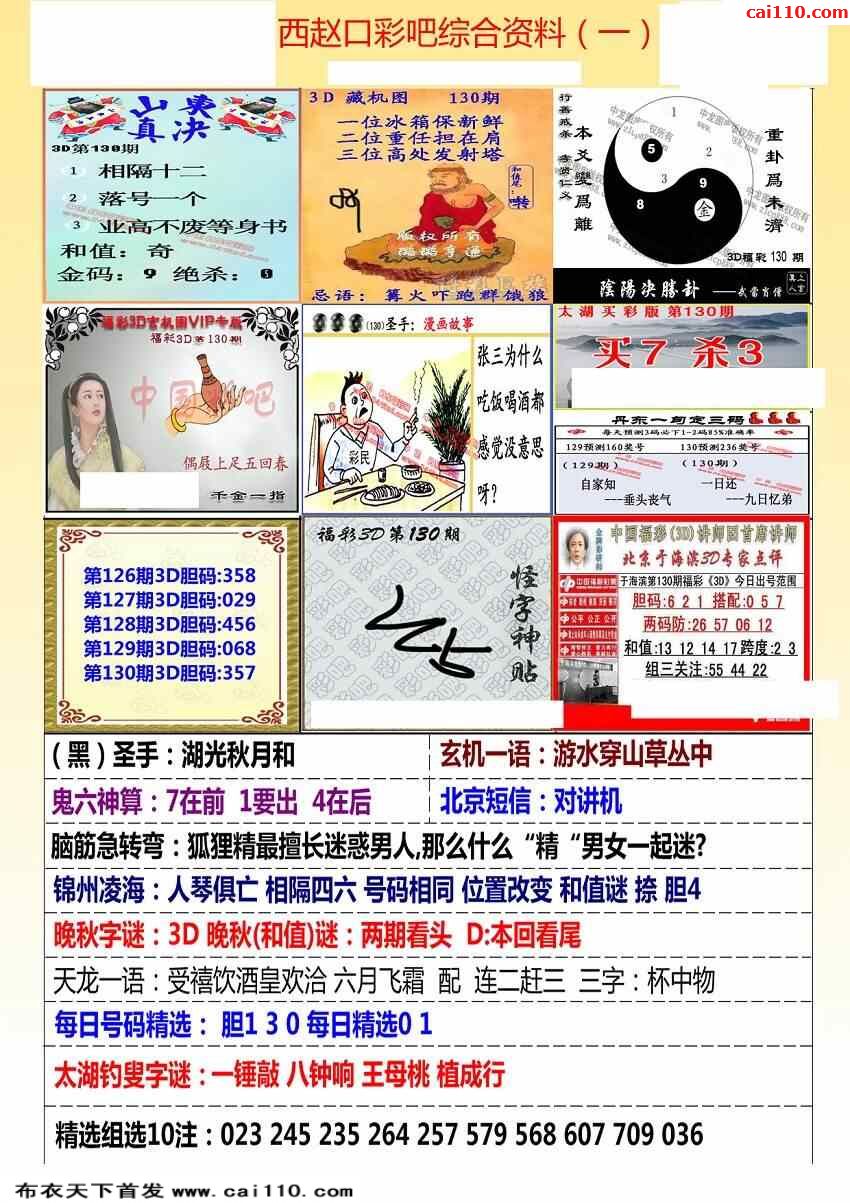 cai110.com
西赵口彩吧综合资料（一）
山奥
真决
3D第130期
1 相隔十二
2 落号一个
3 业高不废等身书
和值：奇
金码：9 绝杀：0
3D 藏机图 130期
一位冰箱保新鲜
二位重任担在肩
三位高处发射塔
和值尾：
版权所有
忌语：篝火吓跑群饿狼
行善戒杀 孝贤仁义
本爻变为离
重卦为未济
1
5
2
3
9
8
金
3D福彩 130 期
阴阳决胜卦 ——武当肖僧
福彩3D玄机图VIP专版
福彩3D第130期
中国彩吧
偶屐上足五回春
千金一指
(130)圣手：漫画故事
张三为什么
吃饭喝酒都
感觉没意思
呀?
彩民
太湖 买彩版 第130期
买7 杀3
丹东一句定三码
每天预测3码必下1-2码85%准确率
129预测160奖号 130预测236奖号
(129期) (130期)
自家知 一日还
---垂头丧气 ---九日忆弟
第126期3D胆码:358
第127期3D胆码:029
第128期3D胆码:456
第129期3D胆码:068
第130期3D胆码:357
福彩3D第130期
怪字神贴
中国福彩(3D)讲师团首席讲师
北京于海滨3D专家点评
中国福利彩票
于海滨第130期福彩《3D》今日出号范围
公平 公正 公开
胆码:6 2 1 搭配:0 5 7
两码防:26 57 06 12
和值:13 12 14 17 跨度:2 3
组三关注:55 44 22
（黑）圣手：湖光秋月和
玄机一语：游水穿山草丛中
鬼六神算：7在前 1要出 4在后
北京短信：对讲机
脑筋急转弯：狐狸精最擅长迷惑男人,那么什么“精“男女一起迷?
锦州凌海：人琴俱亡 相隔四六 号码相同 位置改变 和值谜 捺 胆4
晚秋字谜：3D 晚秋(和值)谜：两期看头 D:本回看尾
天龙一语：受禧饮酒皇欢洽 六月飞霜 配 连二赶三 三字：杯中物
每日号码精选： 胆1 3 0 每日精选0 1
太湖钓叟字谜：一锤敲 八钟响 王母桃 植成行
精选组选10注：023 245 235 264 257 579 568 607 709 036
布衣天下首发 www.cai110.com